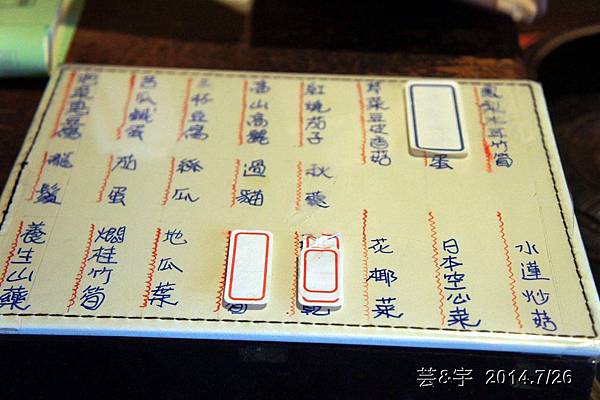 鳳梨木耳竹筍
蛋
芹菜豆皮香菇
紅燒茄子
高山高麗
三杯豆腐
苦瓜鹹蛋
秋葵
過貓
絲瓜
茄蛋
龍鬚
水蓮炒菇
日本空心菜
花椰菜
乾
筍
地瓜葉
燜桂竹筍
養生山藥
芸&宇 2014.7/26